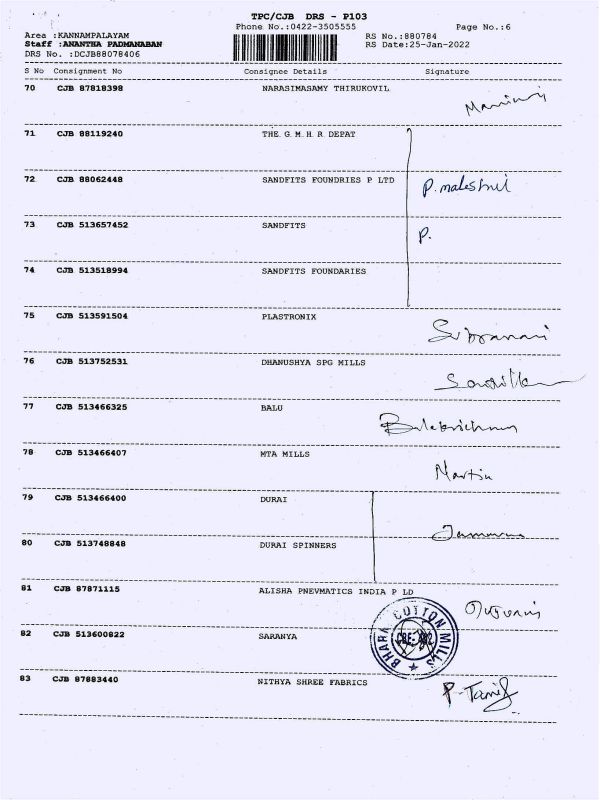 TPC/CJB DRS - P103
Phone No.:0422-3505555
Page No.:6
Area :KANNAMPALAYAM
RS No.:880784
Staff :ANANTHA PADMANABAN
RS Date:25-Jan-2022
DRS No. :DCJB88078406
S No Consignment No Consignee Details Signature
70 CJB 87818398 NARASIMASAMY THIRUKOVIL
71 CJB 88119240 THE G M H R DEPAT
72 CJB 88062448 SANDFITS FOUNDRIES P LTD
73 CJB 513657452 SANDFITS P.
74 CJB 513518994 SANDFITS FOUNDARIES
75 CJB 513591504 PLASTRONIX
76 CJB 513752531 DHANUSHYA SPG MILLS
77 CJB 513466325 BALU
78 CJB 513466407 MTA MILLS Martin
79 CJB 513466400 DURAI
80 CJB 513748848 DURAI SPINNERS
81 CJB 87871115 ALISHA PNEVMATICS INDIA P LD
82 CJB 513600822 SARANYA COTTON MILLS
83 CJB 87883440 NITHYA SHREE FABRICS